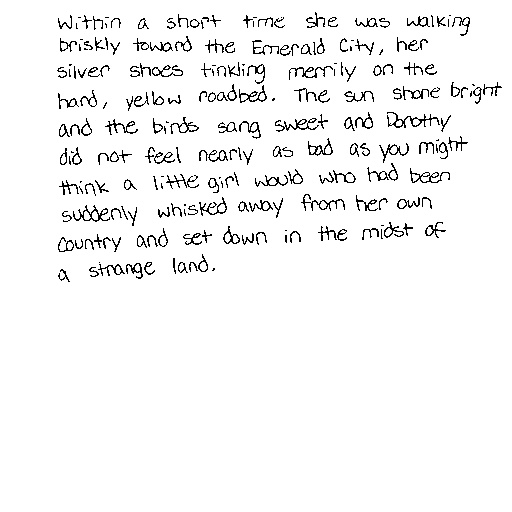 Within a short time she was walking
briskly toward the Emerald City, her
silver shoes tinkling merrily on the
hard, yellow roadbed. The sun shone bright
and the birds sang sweet and Dorothy
did not feel nearly as bad as you might
think a little girl would who had been
suddenly whisked away from her own
country and set down in the midst of
a strange land.